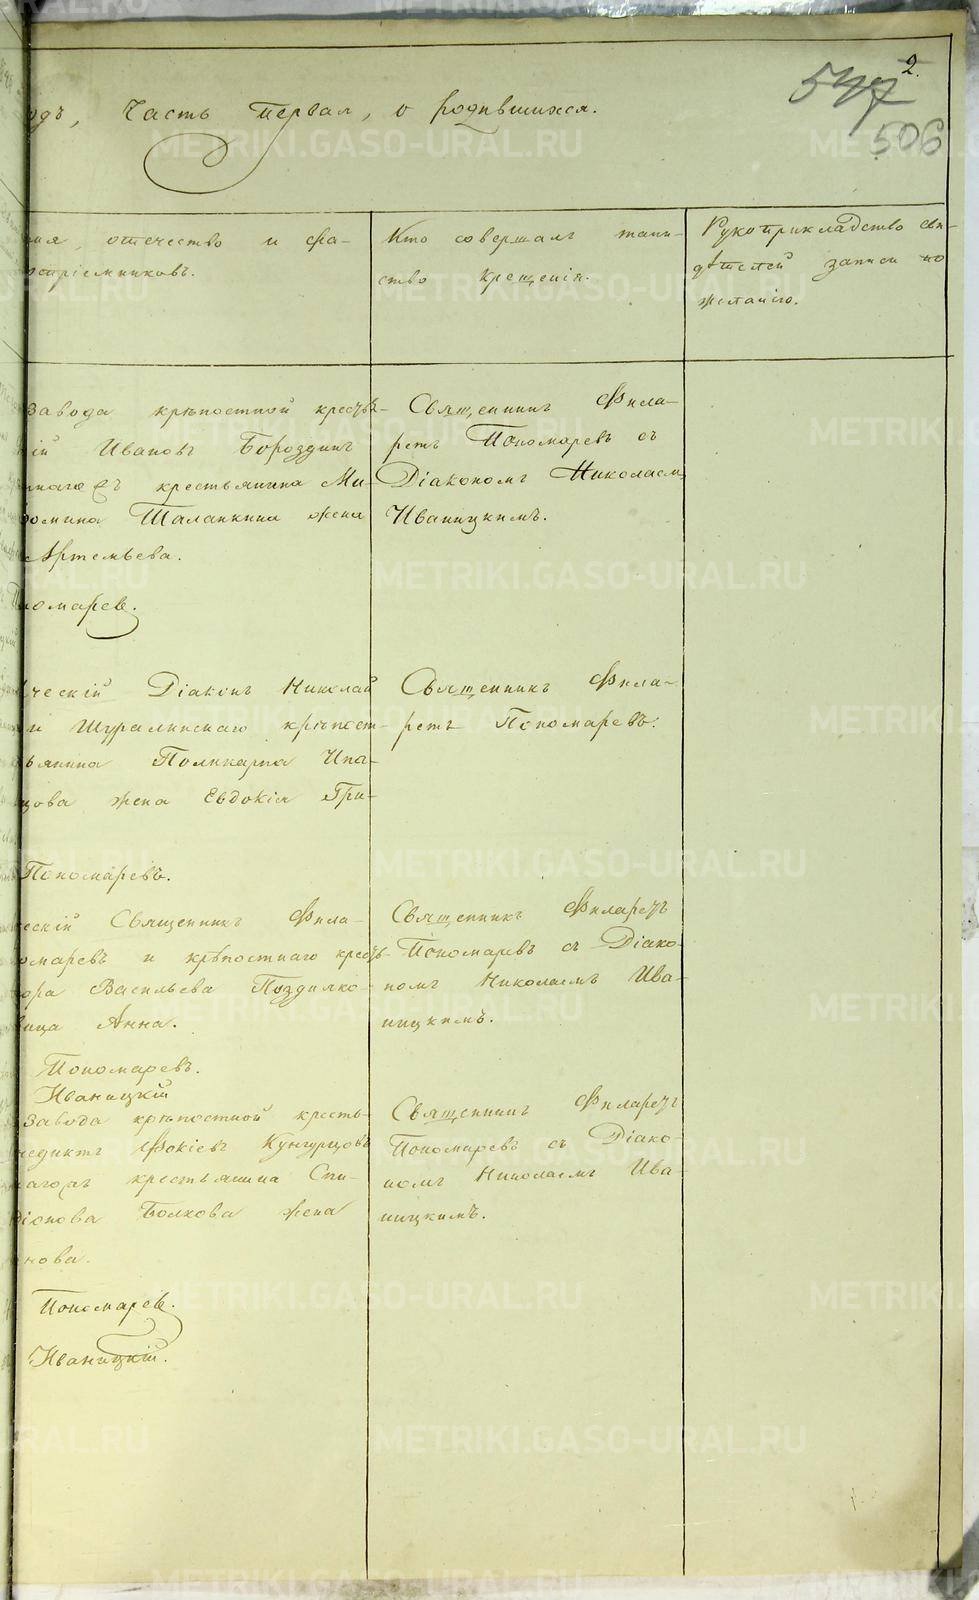 2.
547
506
одъ, Часть Первая, о родившихся.
мя, отечество и фа-
воспріемниковъ.
Кто совершалъ таин-
ство крещенія.
Рукоприкладство сви-
дѣтелей записи по
желанію.
Завода крѣпостной кресть-
ій Ивановъ Бороздинъ
крестьянина Ми-
Талапкина жена
Артемьева.
Пономаревъ.
Священникъ Фила-
ретъ Пономаревъ съ
Діакономъ Николаемъ
Иваницкимъ.
ческій Діаконъ Николай
и Шуралинскаго крѣпост-
ьянина Поликарпа Ипа-
цова жена Евдокія Гри-
Пономаревъ.
Священникъ Фила-
ретъ Пономаревъ.
ескій Священникъ Фила-
омаревъ и крѣпостнаго кресть-
ора Васильева Поздилко-
вица Анна.
Пономаревъ.
Иваницкій
Священникъ Филаретъ
Пономаревъ съ Діако-
номъ Николаемъ Ива-
ницкимъ.
Завода крѣпостной кресть-
недиктъ Фокіевъ Кунгурцовъ
крестьянина Спи-
ріонова Болкова жена
нова.
Пономаревъ.
Иваницкій.
Священникъ Филаретъ
Пономаревъ съ Діако-
номъ Николаемъ Ива-
ницкимъ.
METRIKI.GASO-URAL.RU